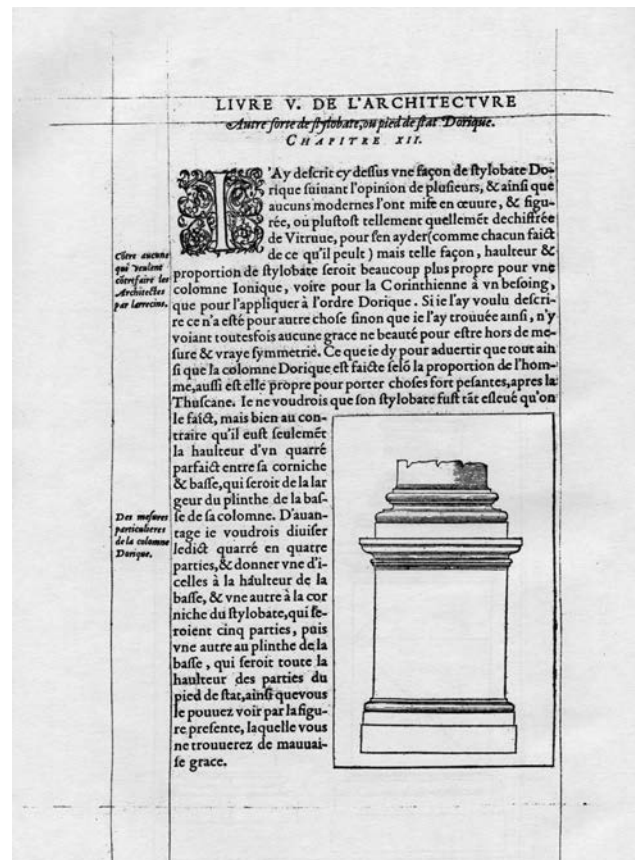 LIVRE V. DE L'ARCHITECTVRE
Autre sorte de stylobate, ou pied de stat Dorique.
CHAPITRE XII.
I'Ay descrit cy dessus vne façon de stylobate Do-
rique suiuant l'opinion de plusieurs, & ainsi que
aucuns modernes l'ont mise en œuure, & figu-
rée, ou plustost tellement quellemẽt dechiffrée
de Vitruue, pour s'en ayder (comme chacun faict
de ce qu'il peult) mais telle façon, haulteur &
proportion de stylobate seroit beaucoup plus propre pour vne
colomne Ionique, voire pour la Corinthienne à vn besoing,
que pour l'appliquer à l'ordre Dorique. Si ie l'ay voulu descri-
re ce n'a esté pour autre chose sinon que ie l'ay trouuée ainsi, n'y
voiant toutesfois aucune grace ne beauté pour estre hors de me-
sure & vraye symmetrie. Ce que ie dy pour aduertir que tout ain
si que la colomne Dorique est faicte selõ la proportion de l'hom-
me, aussi est elle propre pour porter choses fort pesantes, apres la
Thuscane. Ie ne voudrois que son stylobate fust tãt esleué qu'on
le faict, mais bien au con-
traire qu'il eust seulemẽt
la haulteur d'vn quarré
parfaict entre sa corniche
& basse, qui seroit de la lar
geur du plinthe de la bas-
se de sa colomne. D'auan-
tage ie voudrois diuiser
ledict quarré en quatre
parties, & donner vne d'i-
celles à la haulteur de la
basse, & vne autre à la cor
niche du stylobate, qui se-
roient cinq parties, puis
vne autre au plinthe de la
basse, qui seroit toute la
haulteur des parties du
pied de stat, ainsi que vous
le pouuez voir par la figu-
re presente, laquelle vous
ne trouuerez de mauuai-
se grace.
Cõtre aucuns
qui veulent
cõtrefaire les
Architectes
par larrecins.
Des mesures
particulieres
de la colomne
Dorique.